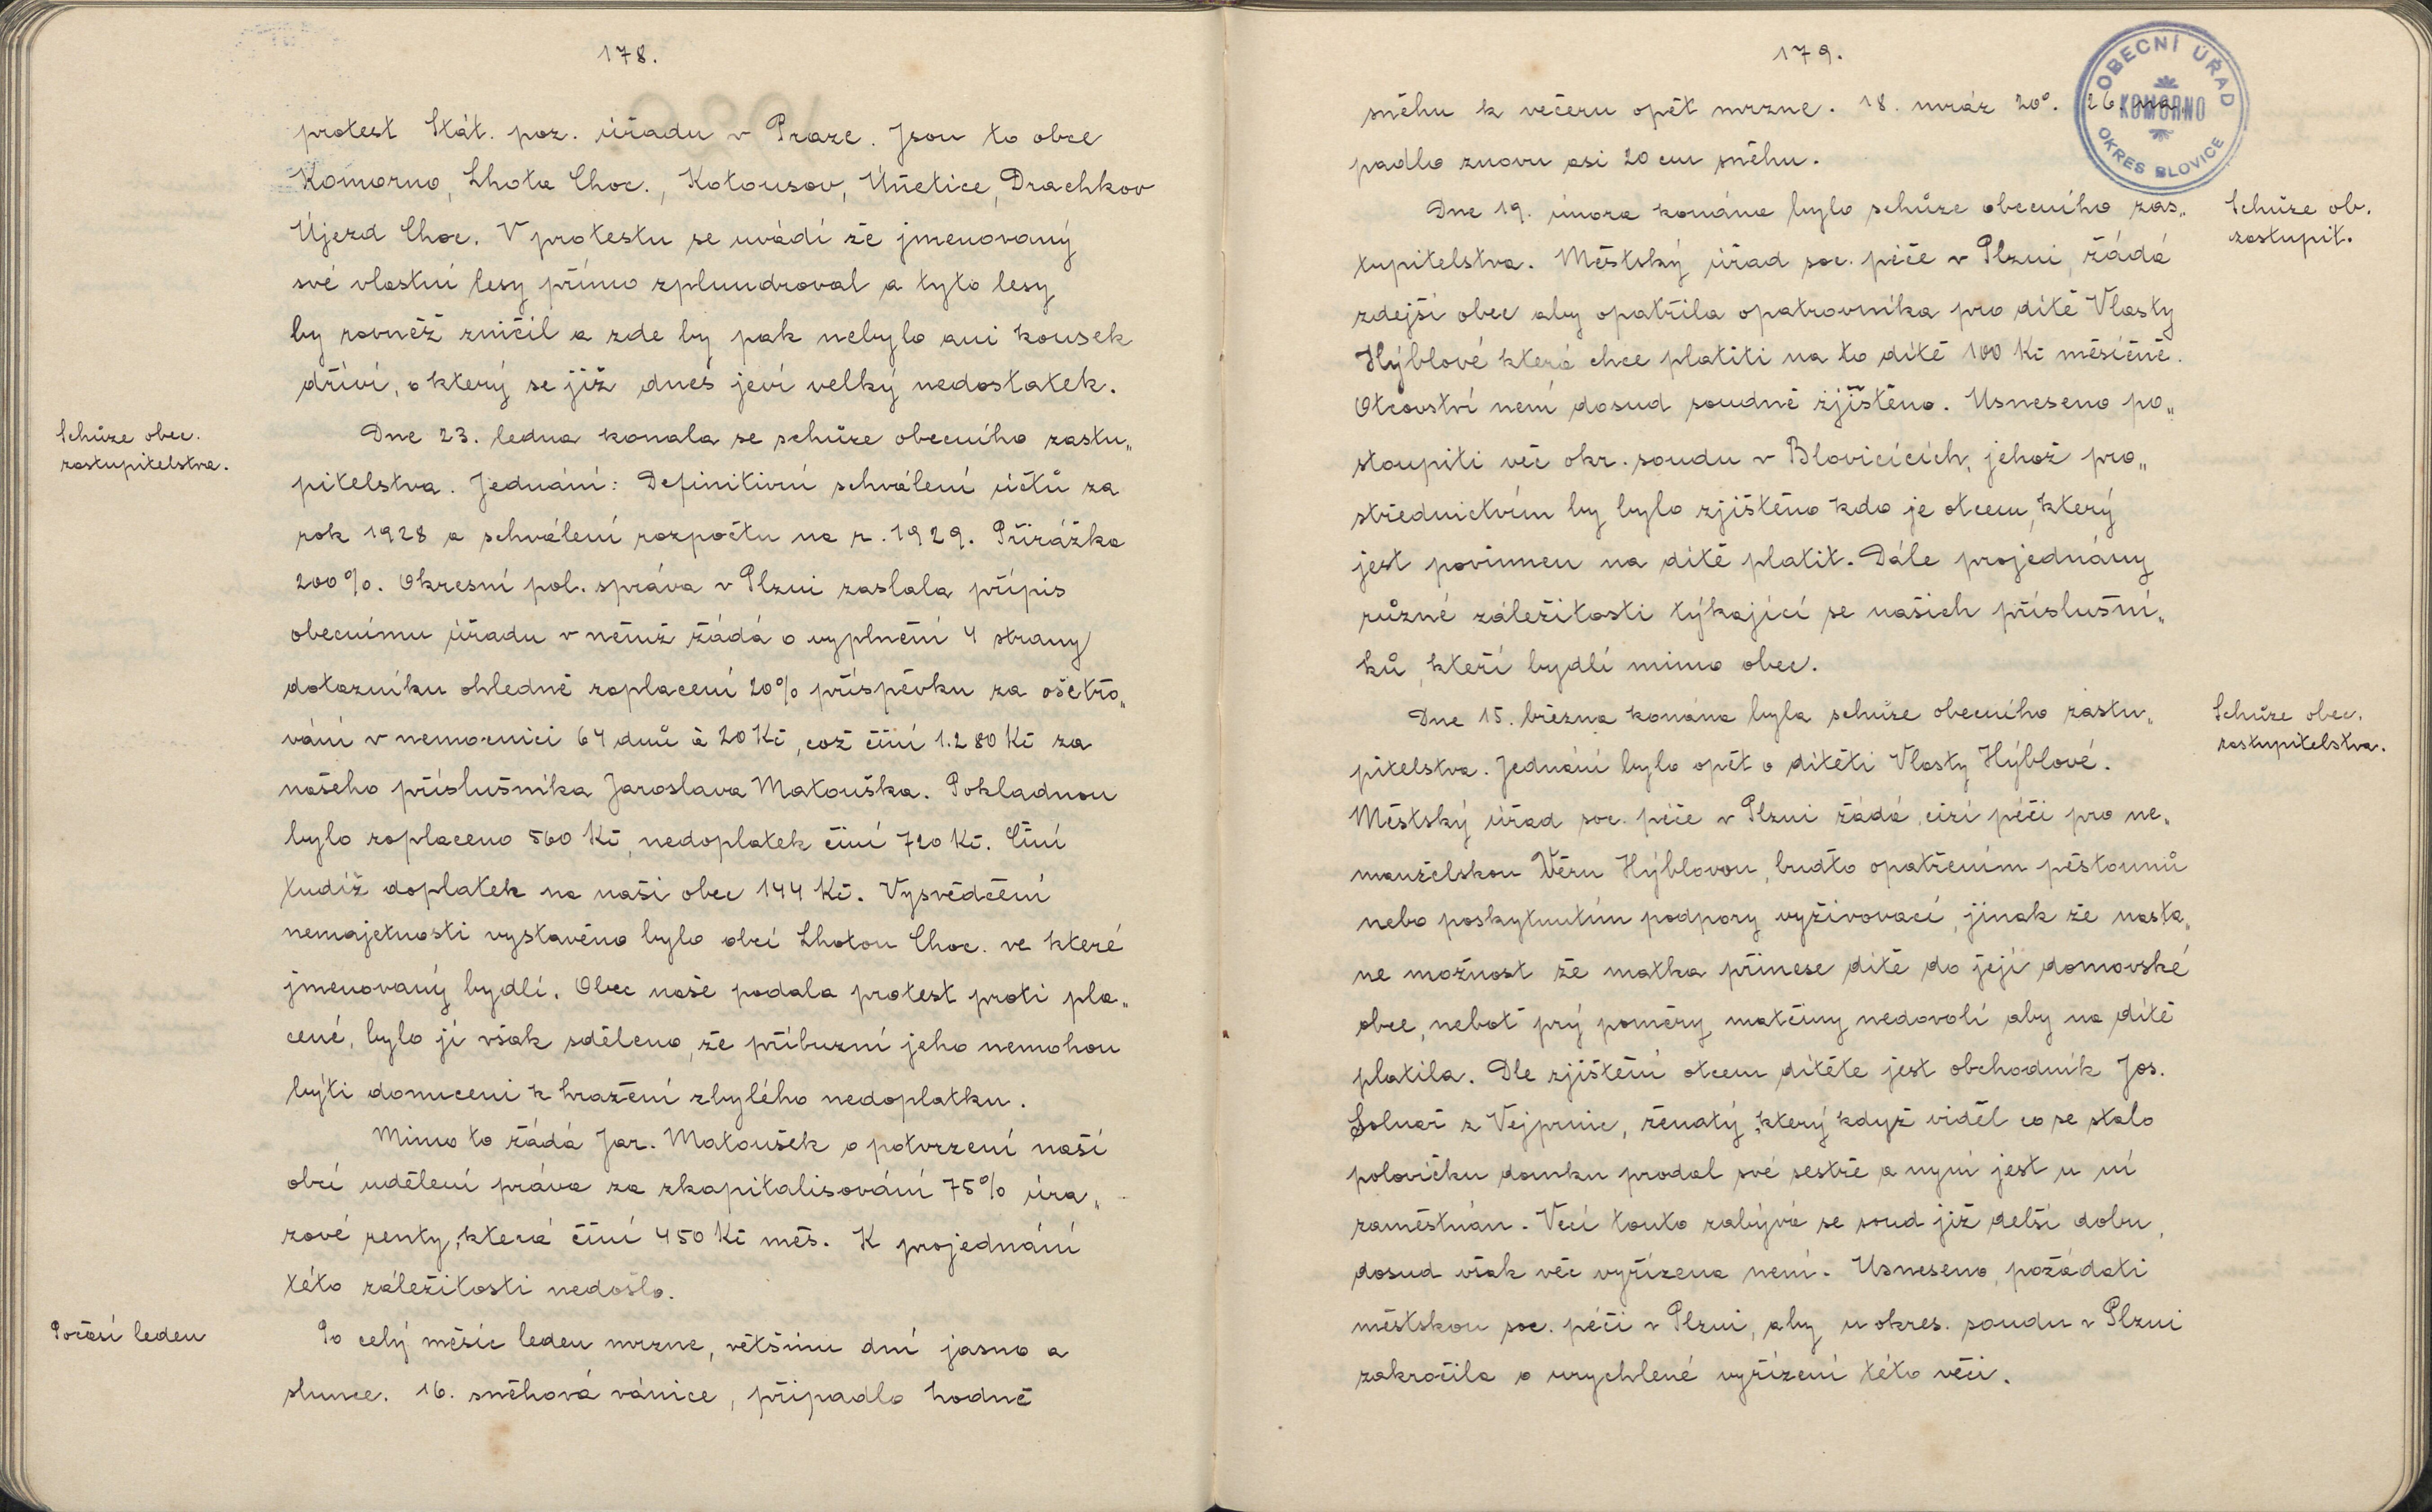 178.
protest Stát. poz. úřadu v Praze. Jsou to obce
Komorno, Lhota Choc., Kotousov, Únetice, Drachkov
Újezd Choc. V protestu se uvádí že jmenovaný
své vlastní lesy přímo zplundroval a tyto lesy
by rovněž zničil a zde by pak nebylo ani kousek
dříví, o který se již dnes jeví velký nedostatek.
Schůze obec.
zastupitelstva.
Dne 23. ledna konala se schůze obecního zastu„
pitelstva. Jednání: Definitivní schválení účtů za
rok 1928 a schválení rozpočtu na r. 1929. Přirážka
200%. Okresní pol. správa v Plzni zaslala přípis
obecnímu úřadu v němž žádá o vyplnění 4 strany
dotazníku ohledně zaplacení 20% příspěvku za ošetřo„
vání v nemocnici 64 dnů à 20 Kč, což činí 1.280 Kč za
našeho příslušníka Jaroslava Matouška. Pokladnou
bylo zaplaceno 560 Kč, nedoplatek činí 720 Kč. Činí
tudíž doplatek na naši obec 144 Kč. Vysvědčení
nemajetnosti vystavěno bylo obcí Lhotou Choc. ve které
jmenovaný bydlí. Obec naše podala protest proti pla„
cené, bylo jí však sděleno, že příbuzní jeho nemohou
býti donuceni k hražení zbylého nedoplatku.
Mimo to žádá Jar. Matoušek o potvrzení naší
obcí udělení práva za zkapitalisování 75% úra„
zové renty, která činí 450 Kč měs. K projednání
této záležitosti nedošlo.
Počasí leden
Po celý měsíc leden mrzne, většinu dní jasno a
slunce. 16. sněhová vánice, připadlo hodně
179.
OBECNÍ ÚŘAD
KOMORNO
OKRES BLOVICE
sněhu k večeru opět mrzne. 18. mráz 20°. 26. na
padlo znovu asi 20 cm sněhu.
Schůze ob.
zastupit.
Dne 19. února konána byla schůze obecního zas„
tupitelstva. Městský úřad soc. péče v Plzni žádá
zdejší obec aby opatřila opatrovníka pro dítě Vlasty
Hýblové která chce platiti na to dítě 100 Kč měsíčně.
Otcovství není dosud soudně zjištěno. Usneseno po„
stoupiti věc okr. soudu v Blovicících, jehož pro„
střednictvím by bylo zjištěno kdo je otcem, který
jest povinnen na dítě platit. Dále projednány
různé záležitosti týkající se našich příslušní„
ků, kteří bydlí mimo obec.
Schůze obec.
zastupitelstva.
Dne 15. března konána byla schůze obecního zastu„
pitelstva. Jednání bylo opět o dítěti Vlasty Hýblové.
Městský úřad soc. péče v Plzni žádá cizí péči pro ne„
manželskou Věru Hýblovou, buďto opatřením pěstounů
nebo poskytnutím podpory vyživovací, jinak že nasta„
ne možnost že matka přinese dítě do její domovské
obce, neboť prý poměry matčiny nedovolí aby na dítě
platila. Dle zjištění otcem dítěte jest obchodník Jos.
Solnař z Vejprnic, ženatý, který když viděl co se stalo
polovičku domku prodal své sestře a nyní jest u ní
zaměstnán. Věcí touto zabývá se soud již delší dobu,
dosud však věc vyřízena není. Usneseno, požádati
městskou soc. péči v Plzni, aby u okres. soudu v Plzni
zakročila o urychlené vyřízení této věci.